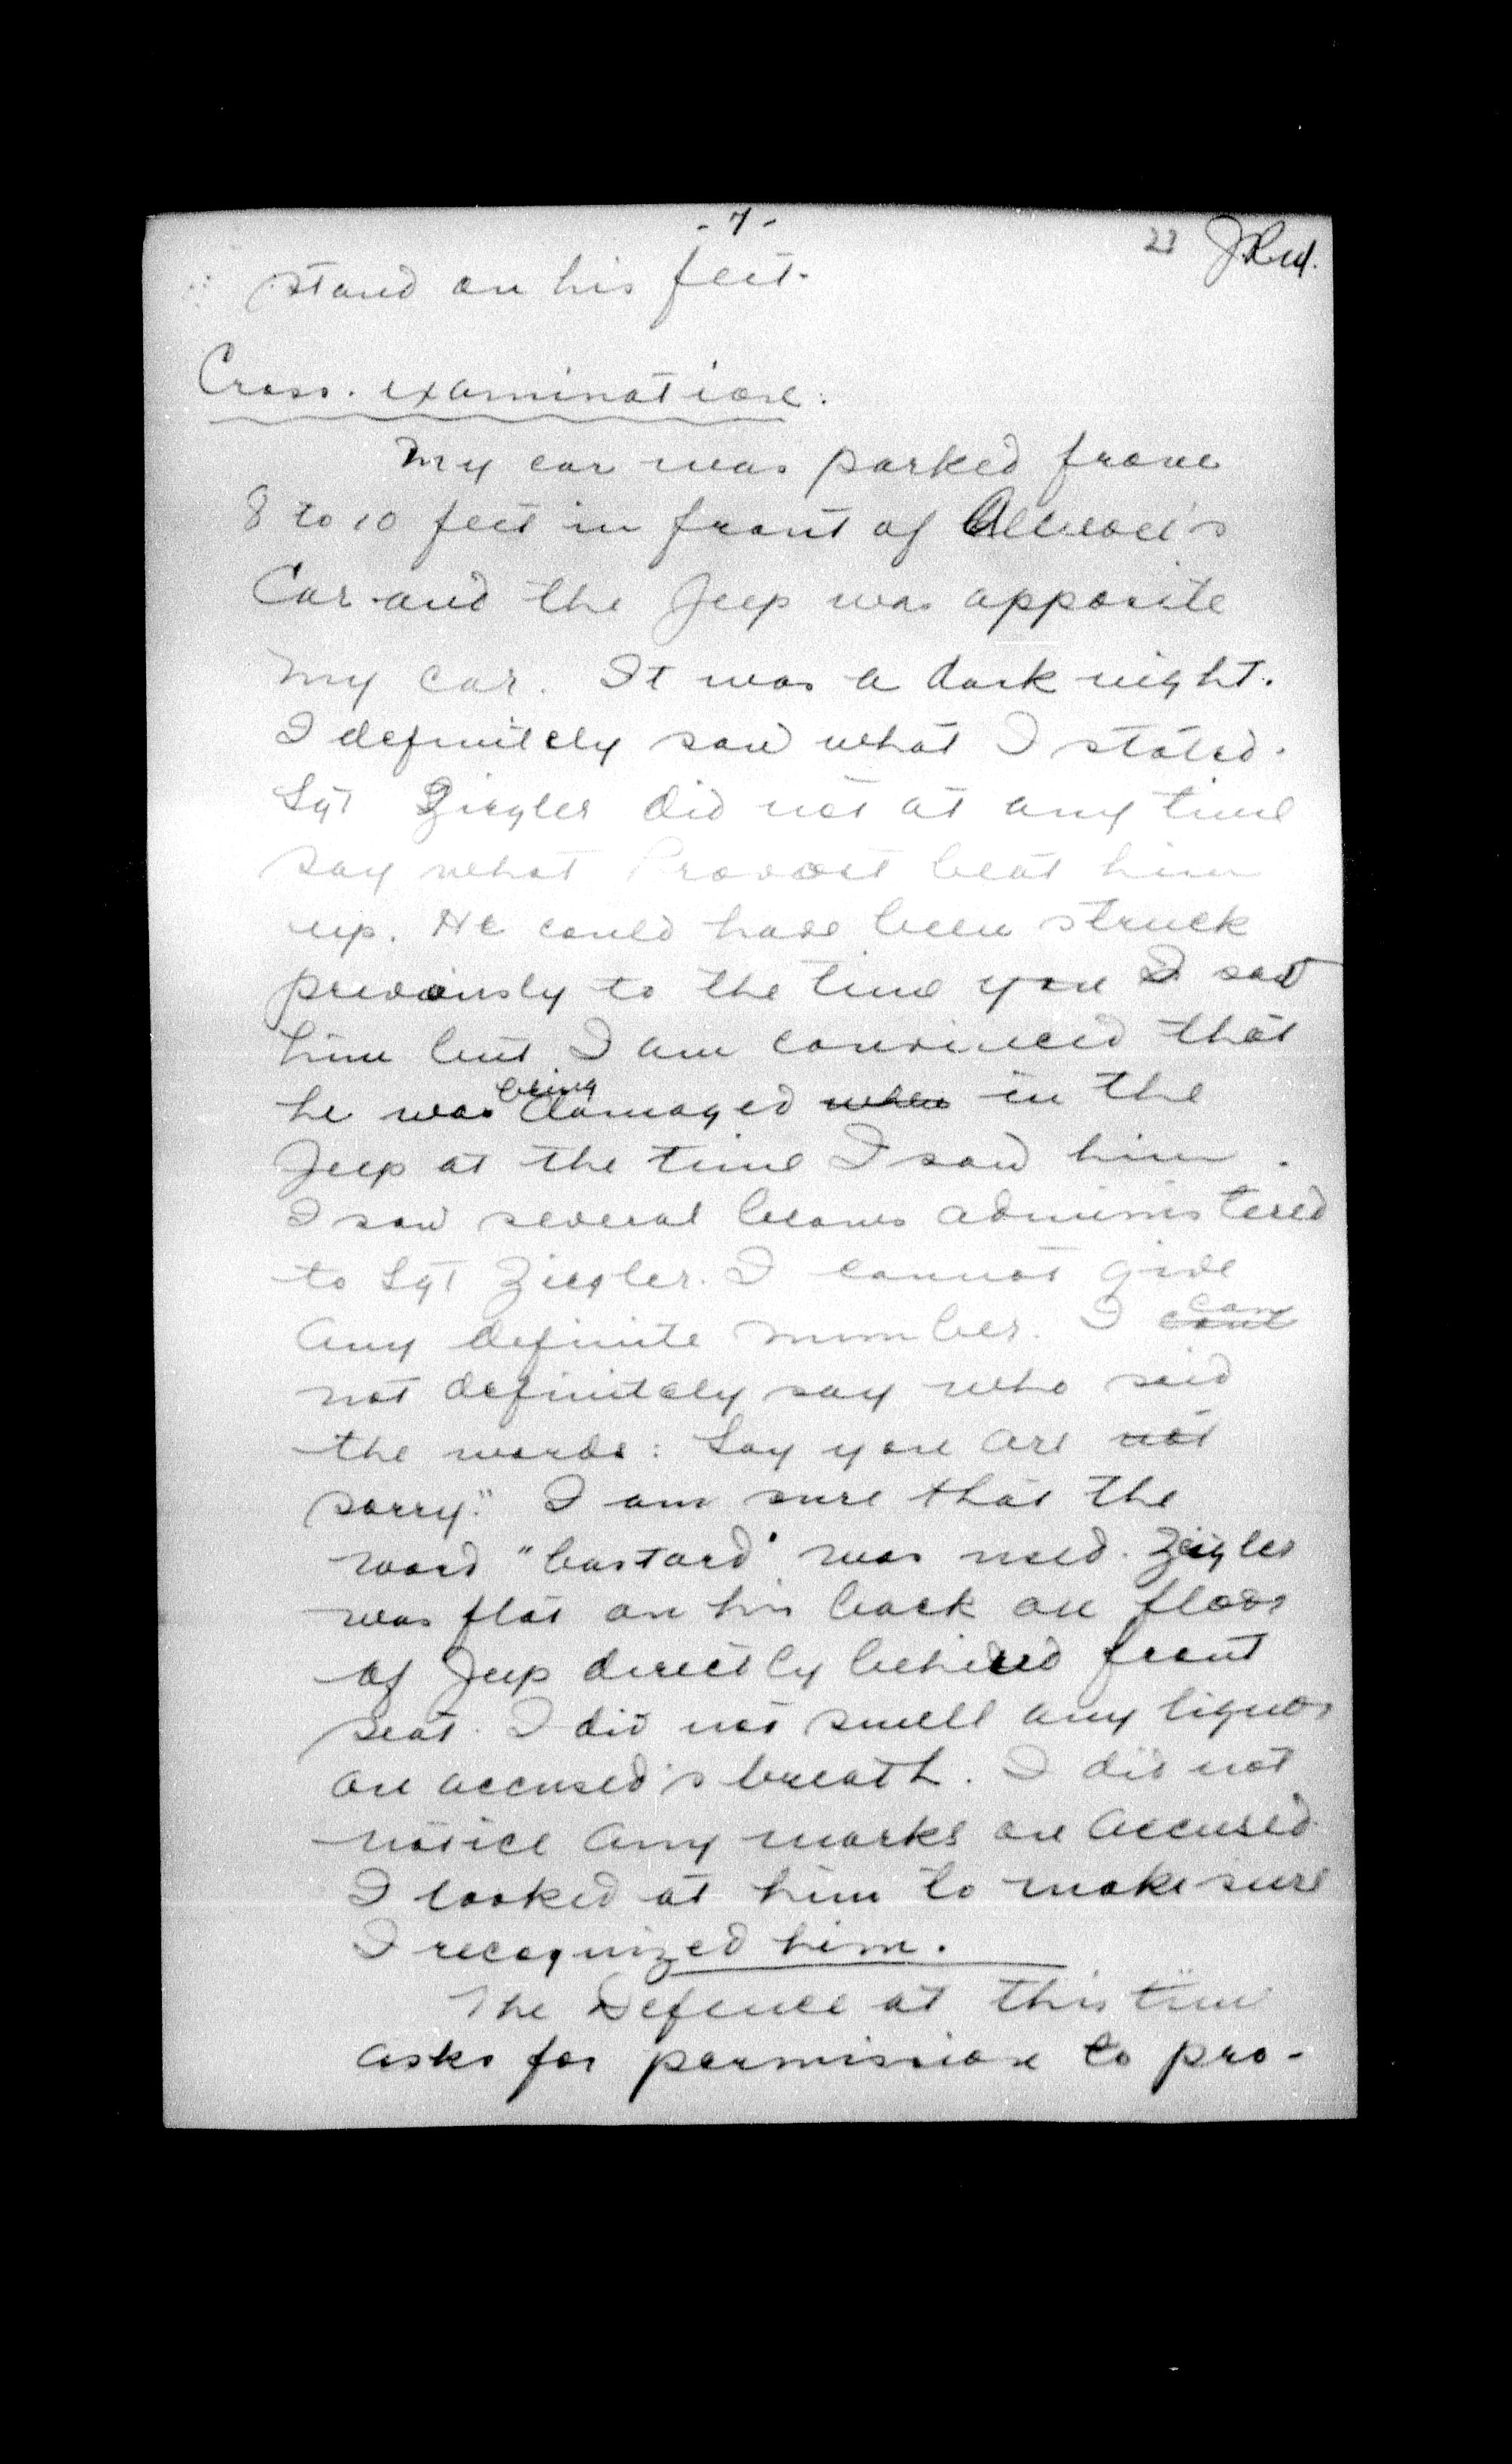 - 7 -
23
stand on his feet.
Cross. examination:
My car was parked from
8 to 10 feet in front of
Car and the Jeep was opposite
my car. It was a dark night.
I definitely saw what I stated.
Sgt Ziegler did not at any time
say what Provost beat him
up. He could have been struck
previously to the time you I saw
him but I am convinced that
he was being damaged when in the
Jeep at the time I saw him.
I saw several blows administered
to Sgt Ziegler. I cannot give
any definite number. I cont can
not definitely say who said
the words: Say you are not
sorry." I am sure that the
word "bastard" was used. Zeigler
was flat on his back on floor
of Jeep directly behind front
seat. I did not smell any liquor
on accused's breath. I did not
notice any marks on accused
I looked at him to make sure
I recognized him.
The Defence at this time
asks for permission to pro-